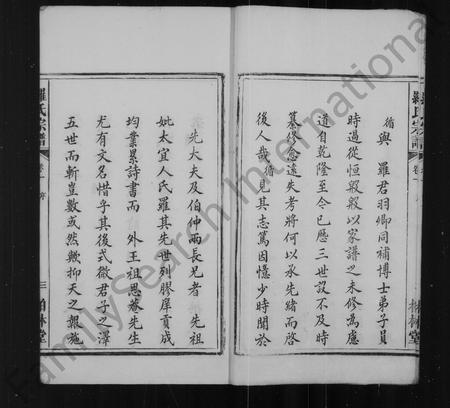 循與 羅君羽卿同補博士弟子員
時過從恒殷殷以家譜之未修為慮
道自乾隆至今已歷三世設不及時
纂修愈遠失考將何以承先緒而啓
後人哉循見其志篤因憶少時聞於
先大夫及伯仲兩長兄者 先祖
妣太宜人氏羅其先世列膠庠貢成
均業累詩書而 外王祖思菴先生
尤有文名惜乎其後式微君子之澤
五世而斬豈數或然歟抑天之報施
羅氏宗譜
卷一 序
三 柏林堂
羅氏宗譜
柏林堂
FamilySearch International